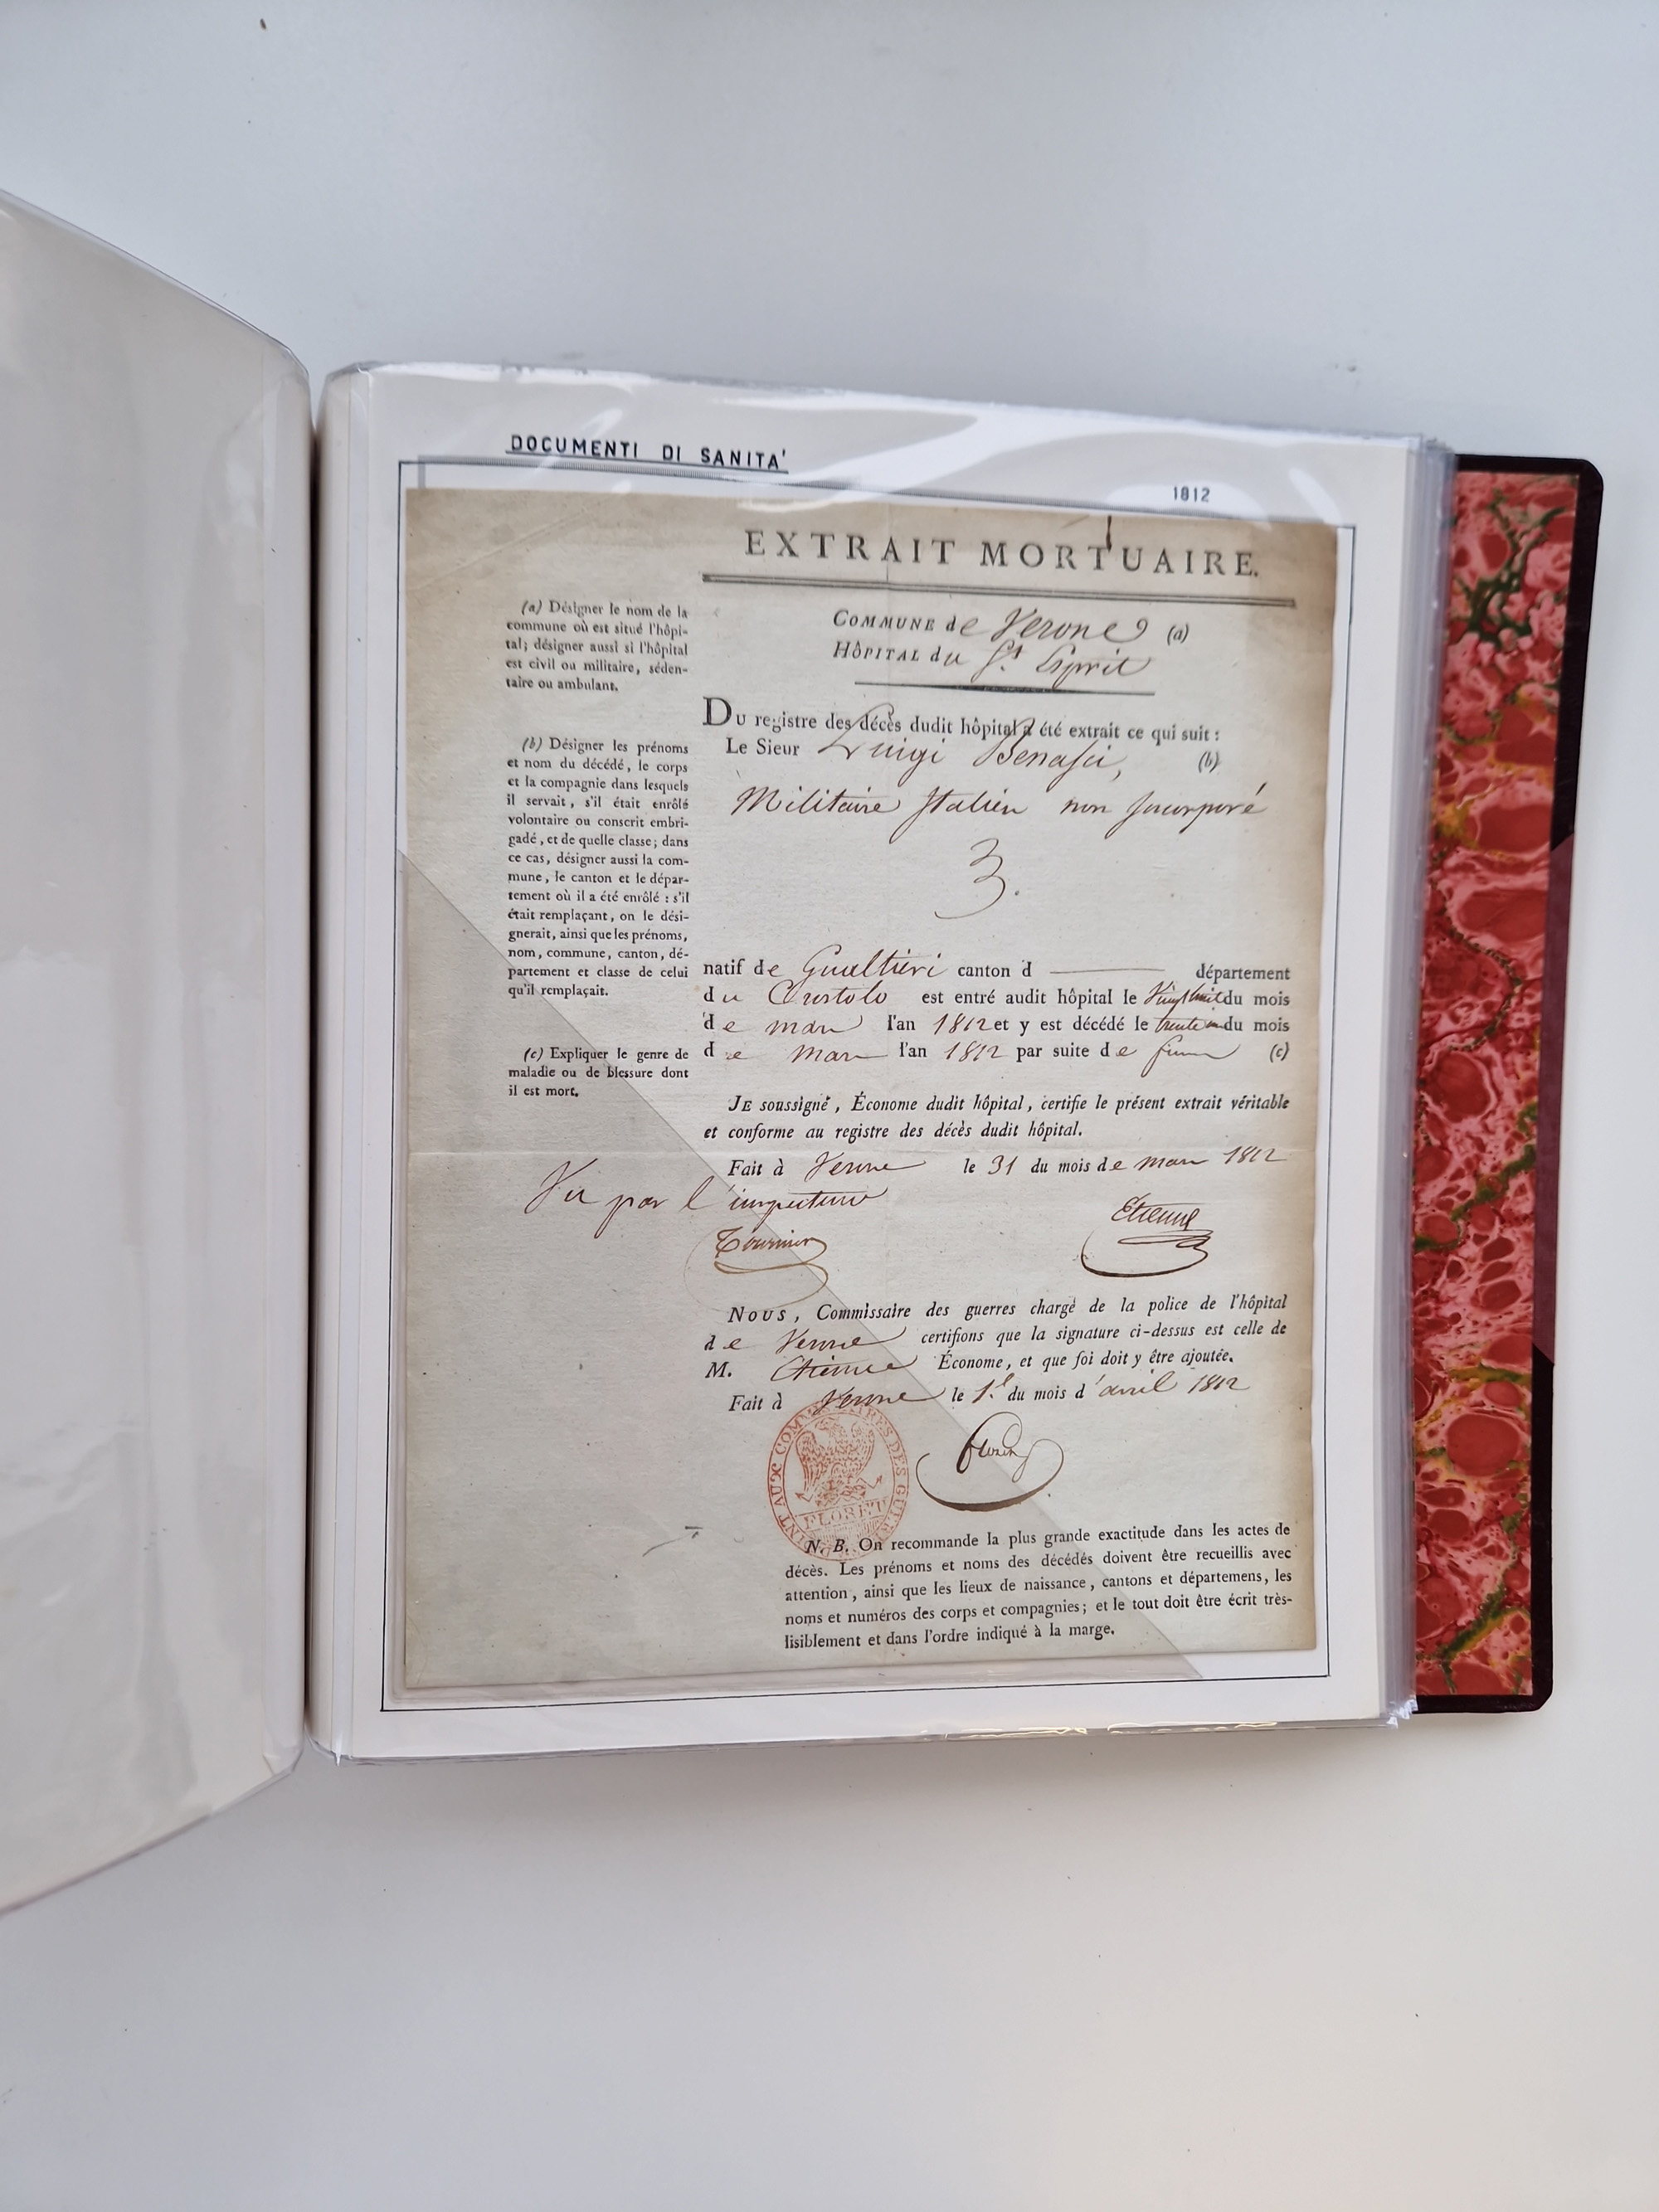 DOCUMENTI DI SANITA'
1812
EXTRAIT MORTUAIRE.
COMMUNE de Verone (a)
HÔPITAL du St. Esprit
(a) Désigner le nom de la
commune où est situé l'hôpi-
tal; désigner aussi si l'hôpital
est civil ou militaire, séden-
taire ou ambulant.
DU registre des décès dudit hôpital a été extrait ce qui suit :
Le Sieur Luigi Benasci, (b)
Militaire Italien non Incorporé
3.
(b) Désigner les prénoms
et nom du décédé, le corps
et la compagnie dans lesquels
il servait, s'il était enrôlé
volontaire ou conscrit embri-
gadé, et de quelle classe; dans
ce cas, désigner aussi la com-
mune, le canton et le dépar-
tement où il a été enrôlé : s'il
était remplaçant, on le dési-
gnerait, ainsi que les prénoms,
nom, commune, canton, dé-
partement et classe de celui
qu'il remplaçait.
natif de Gualtieri canton d département
du Crostolo est entré audit hôpital le Vingt huit du mois
de mars l'an 1812 et y est décédé le trente un du mois
de mars l'an 1812 par suite de (c)
(c) Expliquer le genre de
maladie ou de blessure dont
il est mort.
JE soussigné, Économe dudit hôpital, certifie le présent extrait véritable
et conforme au registre des décès dudit hôpital.
Fait à Verone le 31 du mois de mars 1812
Vu par l'inspecteur
Tournier
Etienne
NOUS, Commissaire des guerres chargé de la police de l'hôpital
de Verone certifions que la signature ci-dessus est celle de
M. Etienne Économe, et que foi doit y être ajoutée.
Fait à Verone le 1er du mois d'avril 1812
ADJOINT AUX COMMISSAIRES DES GUERRES
N. B. On recommande la plus grande exactitude dans les actes de
décès. Les prénoms et noms des décédés doivent être recueillis avec
attention, ainsi que les lieux de naissance, cantons et départemens, les
noms et numéros des corps et compagnies; et le tout doit être écrit très-
lisiblement et dans l'ordre indiqué à la marge.